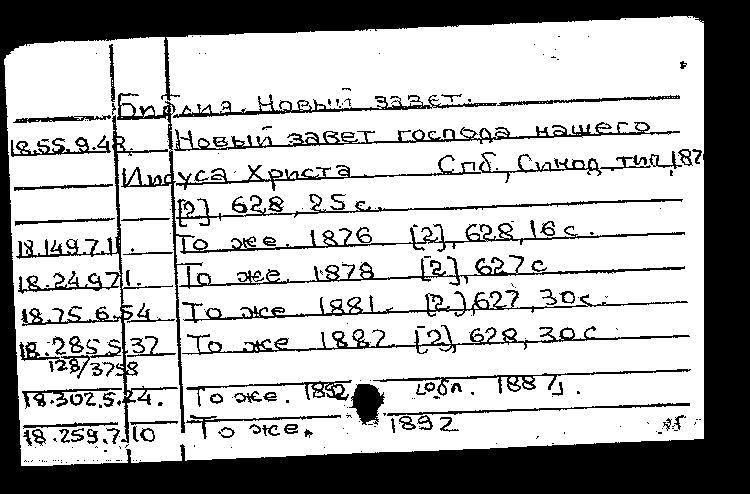 Библия. Новый завет.
18.55.9.48. Новый завет господа нашего
Иисуса Христа. Спб., Синод. тип.,
[2], 628, 25 с.
18.149.7.11. То же. 1876 [2], 628, 16 с.
18.24.9.71. То же. 1878 [2], 627 с
18.75.6.54. То же 1881. [2], 627, 30 с.
18.285.5.37 То же 1887. [2], 628, 30 с
128/3758
18.302.5.24. То же. 1892 [обл. 1887].
18.259.7.10 То же. 1892